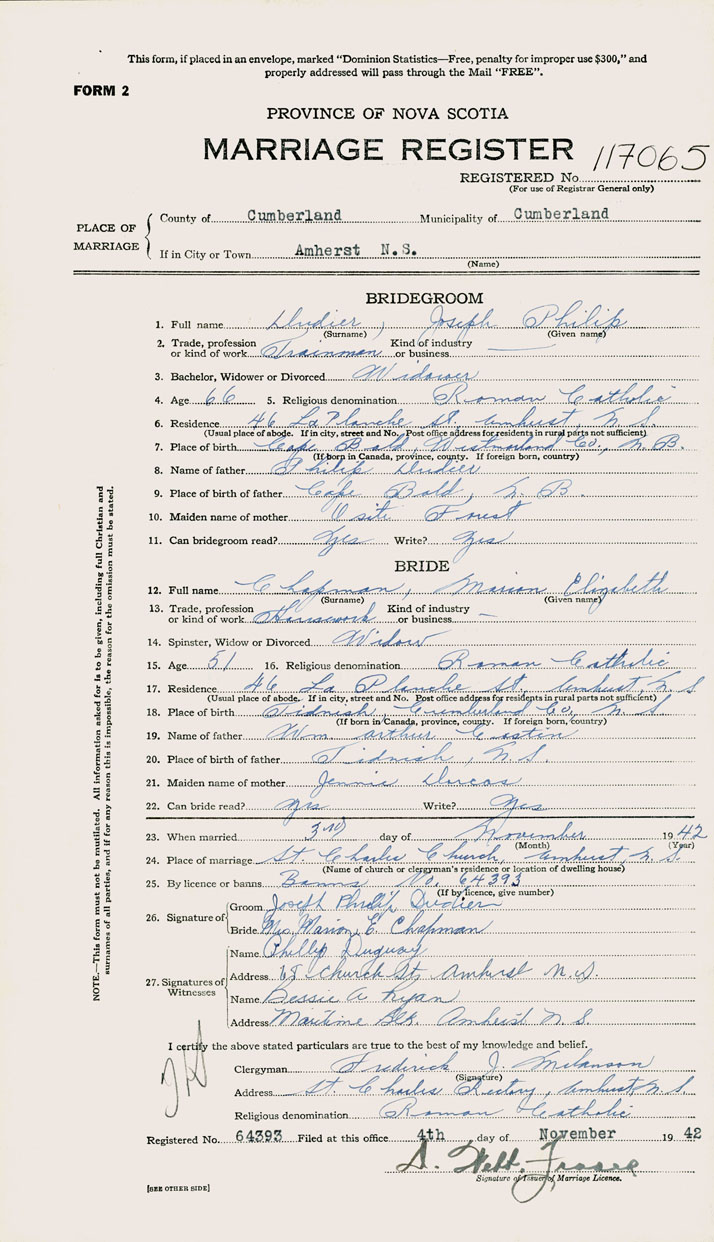 This form, if placed in an envelope, marked "Dominion Statistics—Free, penalty for improper use $300," and
properly addressed will pass through the Mail "FREE".
FORM 2
PROVINCE OF NOVA SCOTIA
MARRIAGE REGISTER 117065
REGISTERED No.
(For use of Registrar General only)
PLACE OF MARRIAGE
County of Cumberland Municipality of Cumberland
If in City or Town Amherst N.S.
(Name)
BRIDEGROOM
1. Full name Dudier, Joseph Philip
(Surname) (Given name)
2. Trade, profession or kind of work Trainman Kind of industry or business —
3. Bachelor, Widower or Divorced Widower
4. Age 66 5. Religious denomination Roman Catholic
6. Residence 46 LaPlanche St. Amherst N.S.
(Usual place of abode. If in city, street and No. Post office address for residents in rural parts not sufficient)
7. Place of birth Cape Bald, Westmorland Co., N.B.
(If born in Canada, province, county. If foreign born, country)
8. Name of father Philip Dudier
9. Place of birth of father Cape Bald, N.B.
10. Maiden name of mother Osite
11. Can bridegroom read? Yes Write? Yes
BRIDE
12. Full name Chapman, Marion Elizabeth
(Surname) (Given name)
13. Trade, profession or kind of work Housework Kind of industry or business —
14. Spinster, Widow or Divorced Widow
15. Age 51 16. Religious denomination Roman Catholic
17. Residence 46 La Planche St, Amherst, N.S
(Usual place of abode. If in city, street and No. Post office address for residents in rural parts not sufficient)
18. Place of birth Tidnish, Cumberland Co., N.S
(If born in Canada, province, county. If foreign born, country)
19. Name of father Wm. Arthur
20. Place of birth of father Tidnish, N.S.
21. Maiden name of mother Jennie
22. Can bride read? Yes Write? Yes
23. When married 3rd day of November 1942
(Month) (Year)
24. Place of marriage St. Charles Church, Amherst, N.S.
(Name of church or clergyman's residence or location of dwelling house)
25. By licence or banns Banns No. 64393
(If by licence, give number)
26. Signature of
Groom Joseph Philip Dudier
Bride Mrs. Marion E. Chapman
27. Signatures of Witnesses
Name Phillip Duguay
Address 18 Church St. Amherst N.S.
Name Bessie A Ryan
Address Maritime Blk. Amherst N.S.
I certify the above stated particulars are true to the best of my knowledge and belief.
Clergyman Frederick J. Melanson
(Signature)
Address St. Charles Rectory, Amherst, N.S.
Religious denomination Roman Catholic
Registered No. 64393 Filed at this office 4th day of November 1942
Signature of Issuer of Marriage Licence.
[SEE OTHER SIDE]
NOTE.—This form must not be mutilated. All information asked for is to be given, including full Christian and
surnames of all parties, and if for any reason this is impossible, the reason for the omission must be stated.